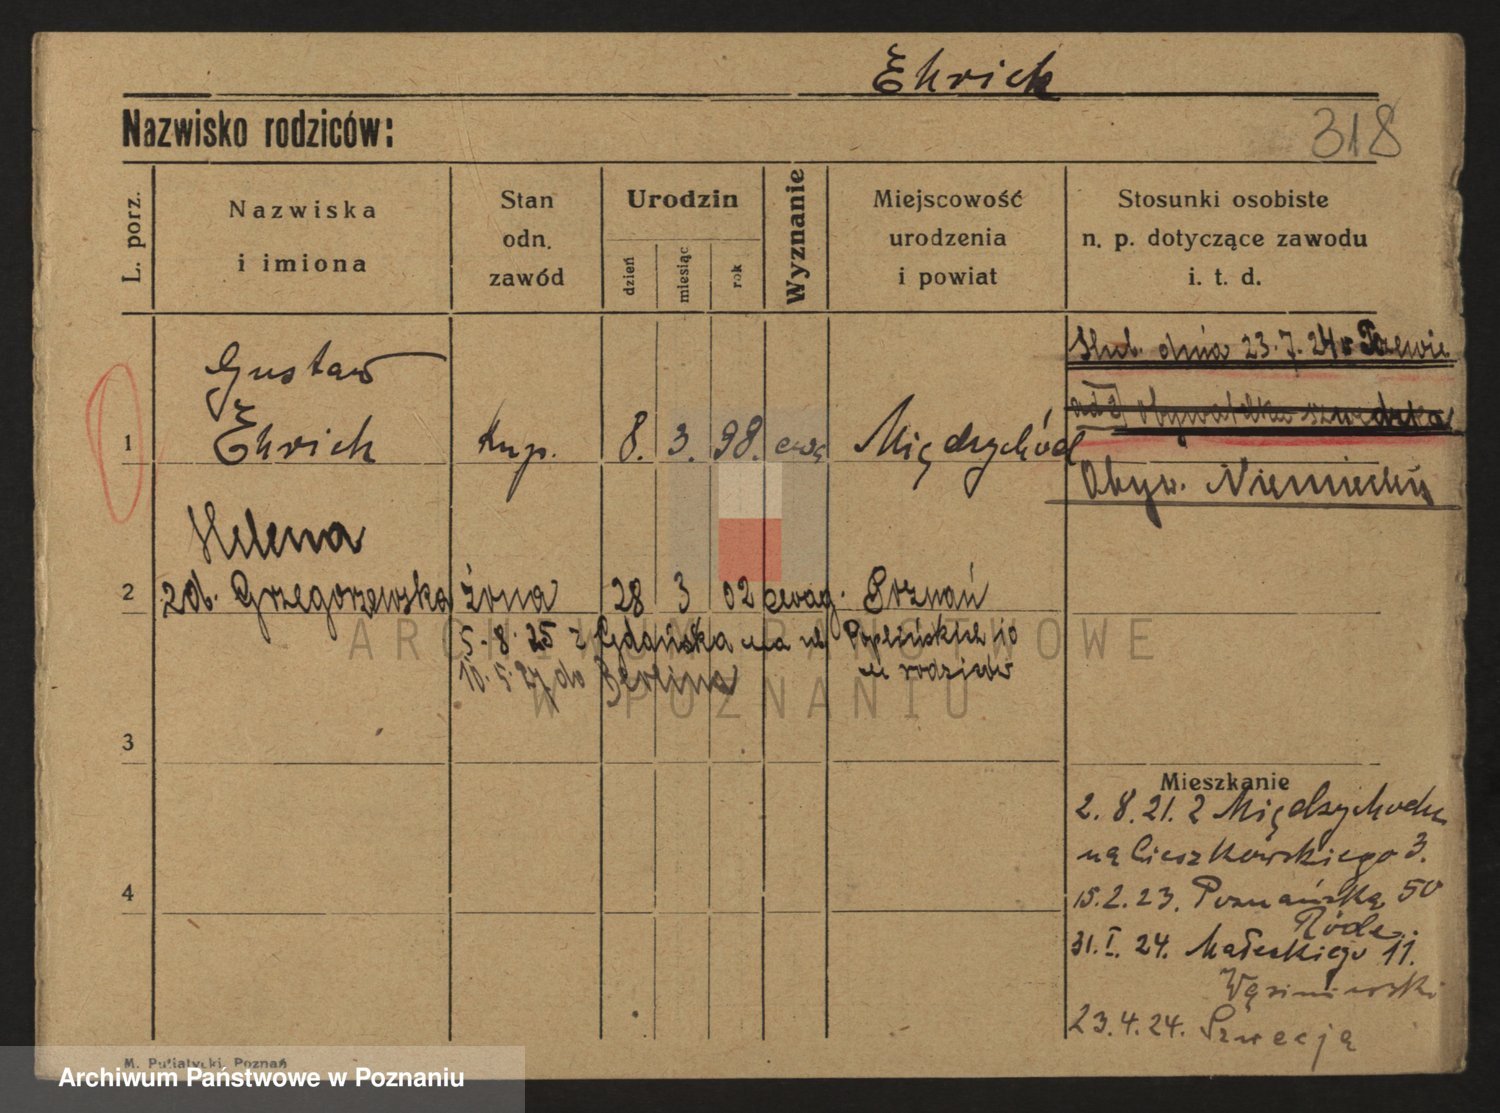 Ehrich
318
Nazwisko rodziców:
L. porz.
Nazwiska
i imiona
Stan
odn.
zawód
Urodzin
dzień
miesiąc
rok
Wyznanie
Miejscowość
urodzenia
i powiat
Stosunki osobiste
n. p. dotyczące zawodu
i. t. d.
1
Gustaw
Ehrich
Kup.
8. 3. 98.
Międzychód
ślub. dnia 23.7.24 w Tczewie
obywatelka szwedzka
Obyw. Niemiecki
2
Helena
zd. Grzegorzewska
żona
28 3 02 ewag.
Poznań
5.8.25 z Gdańska na ul. Poplińskich 10
do Berlina
u rodziców
3
4
Mieszkanie
2.8.21. z Międzychodu
na Cieszkowskiego 3.
15.2.23. Poznańską 50
31.I.24. Małeckiego 11.
23.4.24. Szwecją
M. Putiatycki, Poznań
ARCHIWUM PAŃSTWOWE
W POZNANIU
Archiwum Państwowe w Poznaniu